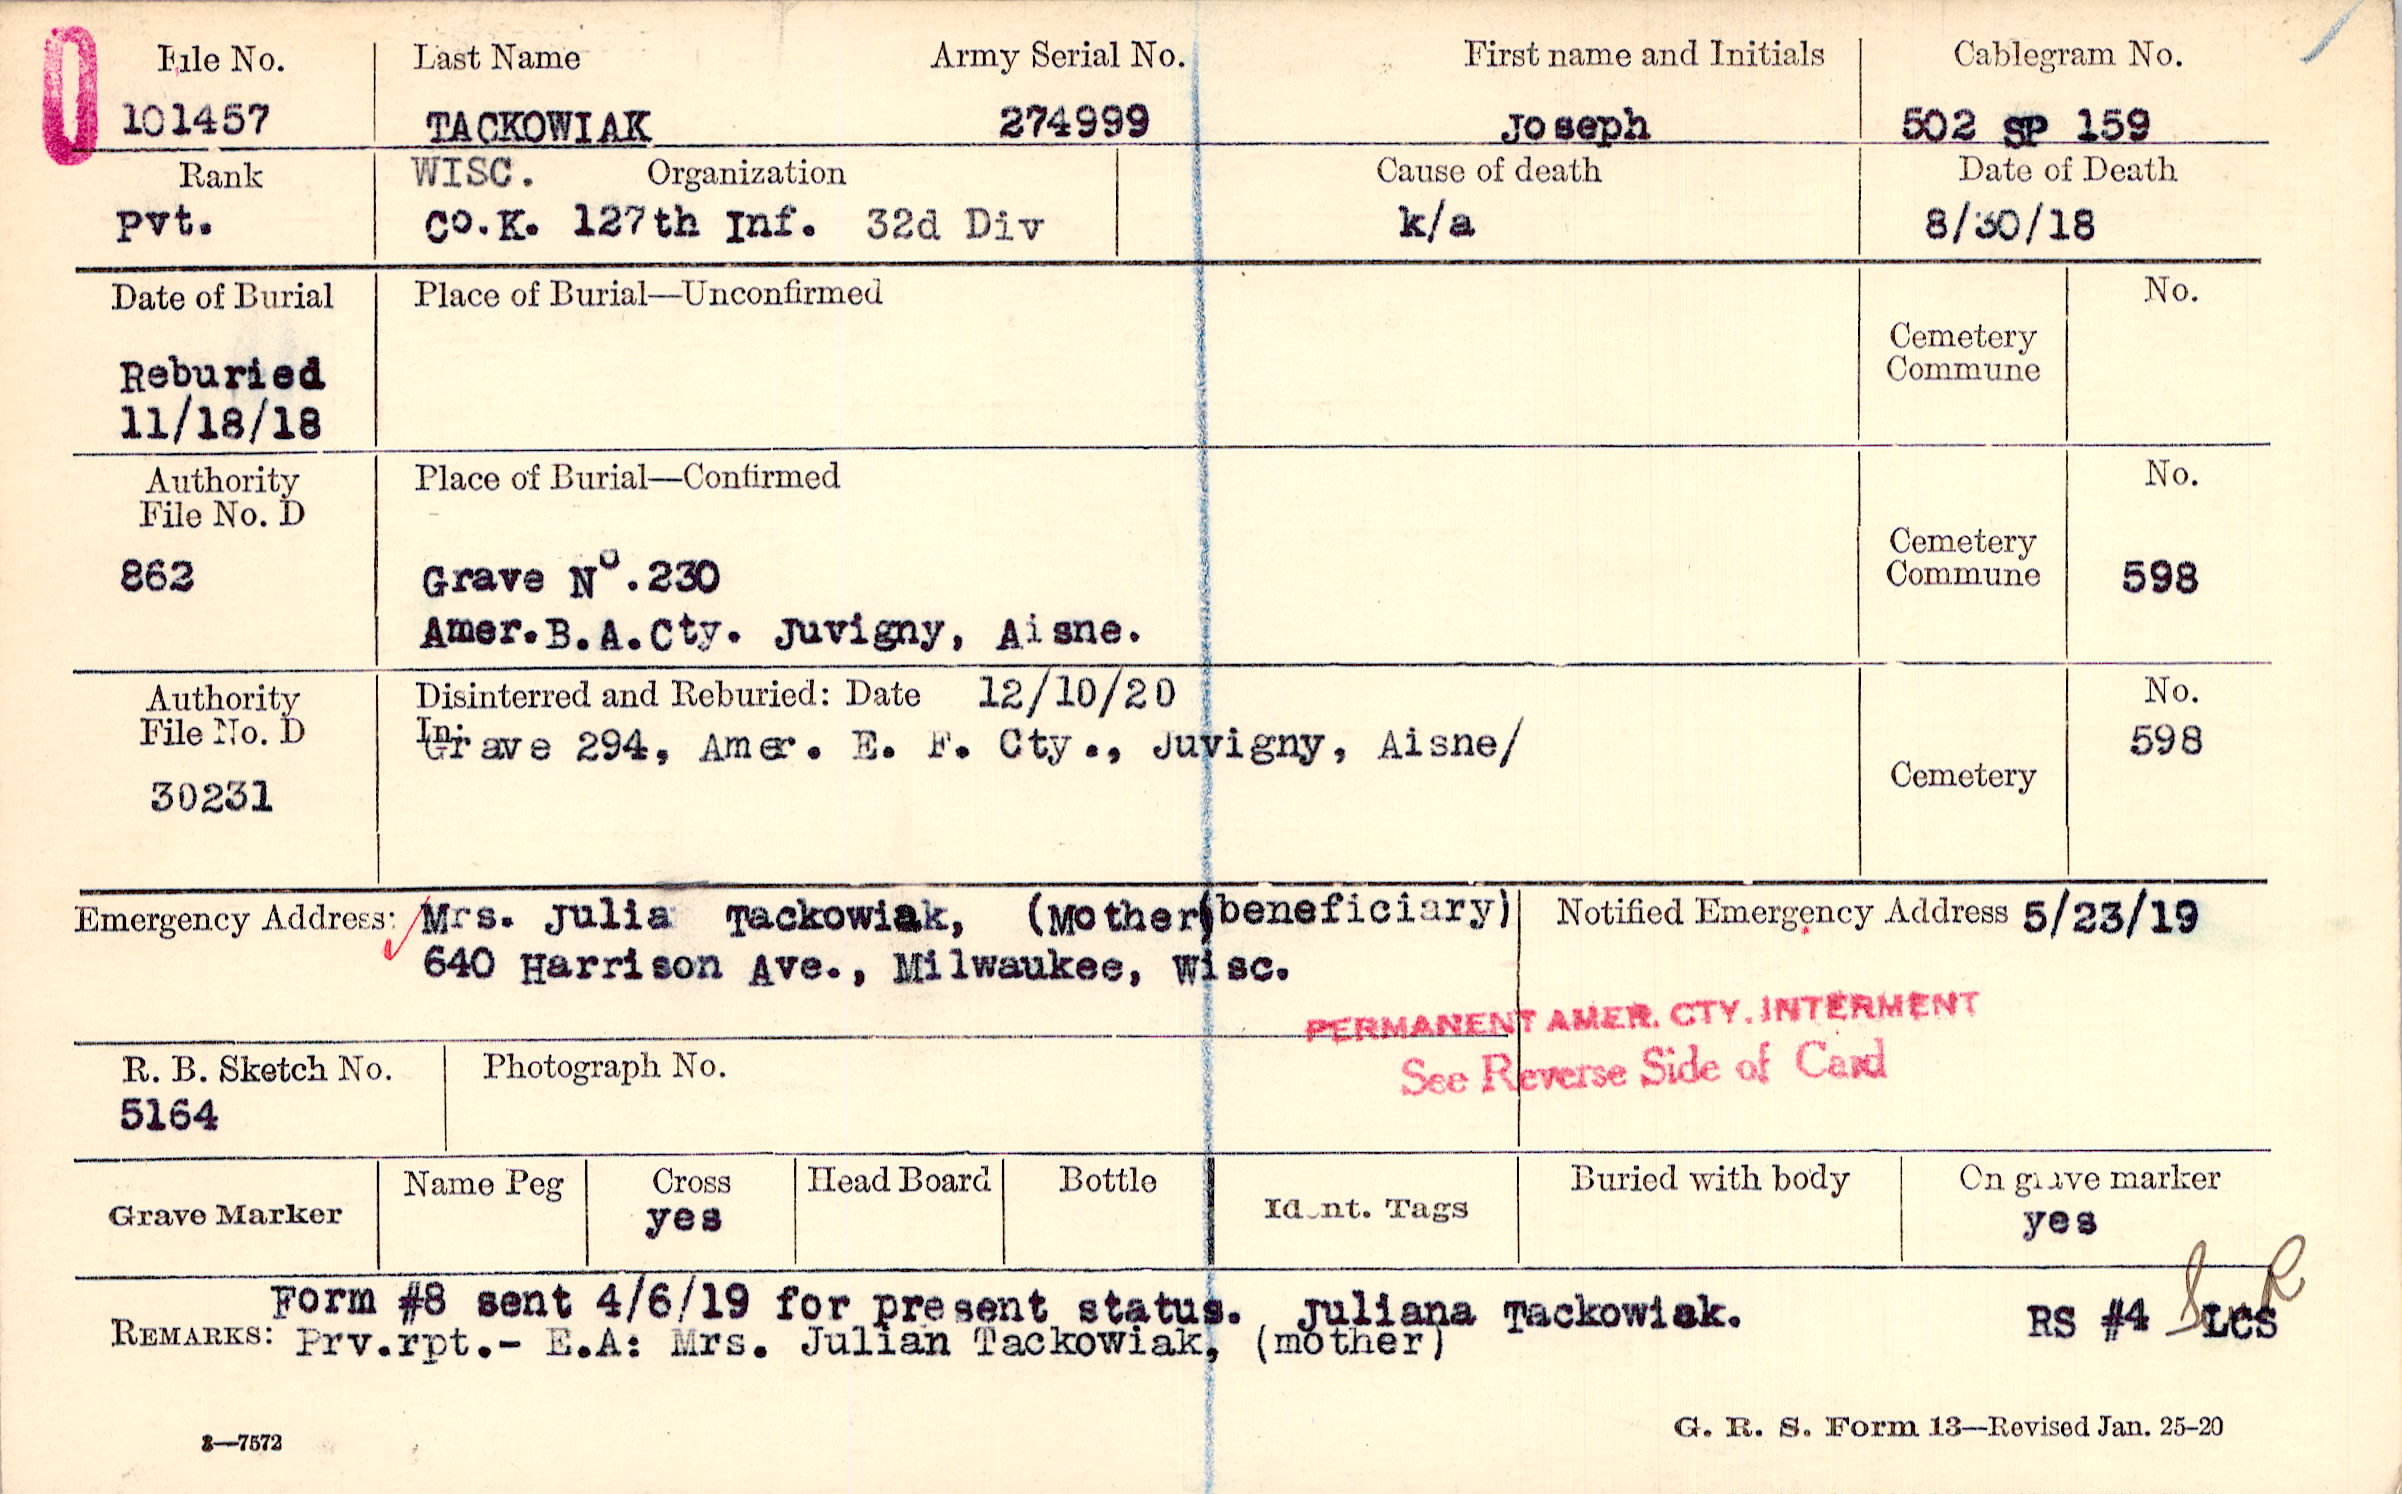 File No. Last Name Army Serial No. First name and Initials Cablegram No.
101457 TACKOWIAK 274999 Joseph 502 SP 159
Rank WISC. Organization Cause of death Date of Death
Pvt. Co.K. 127th Inf. 32d Div k/a 8/30/18
Date of Burial Place of Burial—Unconfirmed No.
Cemetery
Commune
Reburied
11/18/18
Authority Place of Burial—Confirmed No.
File No. D
Cemetery
Commune
862 Grave No.230 598
Amer.B.A.Cty. Juvigny, Aisne.
Authority Disinterred and Reburied: Date 12/10/20 No.
File No. D In: Grave 294, Amer. E. F. Cty., Juvigny, Aisne/ 598
Cemetery
30231
Emergency Address: Mrs. Julia Tackowiak, (Mother (beneficiary) Notified Emergency Address 5/23/19
640 Harrison Ave., Milwaukee, Wisc.
PERMANENT AMER. CTY. INTERMENT
See Reverse Side of Card
R. B. Sketch No. Photograph No.
5164
Grave Marker Name Peg Cross Head Board Bottle Ident. Tags Buried with body On grave marker
yes yes
Form #8 sent 4/6/19 for present status. Juliana Tackowiak. RS #4 LCS
REMARKS: Prv.rpt.- E.A: Mrs. Julian Tackowiak, (mother)
3—7572
G. R. S. Form 13—Revised Jan. 25-20